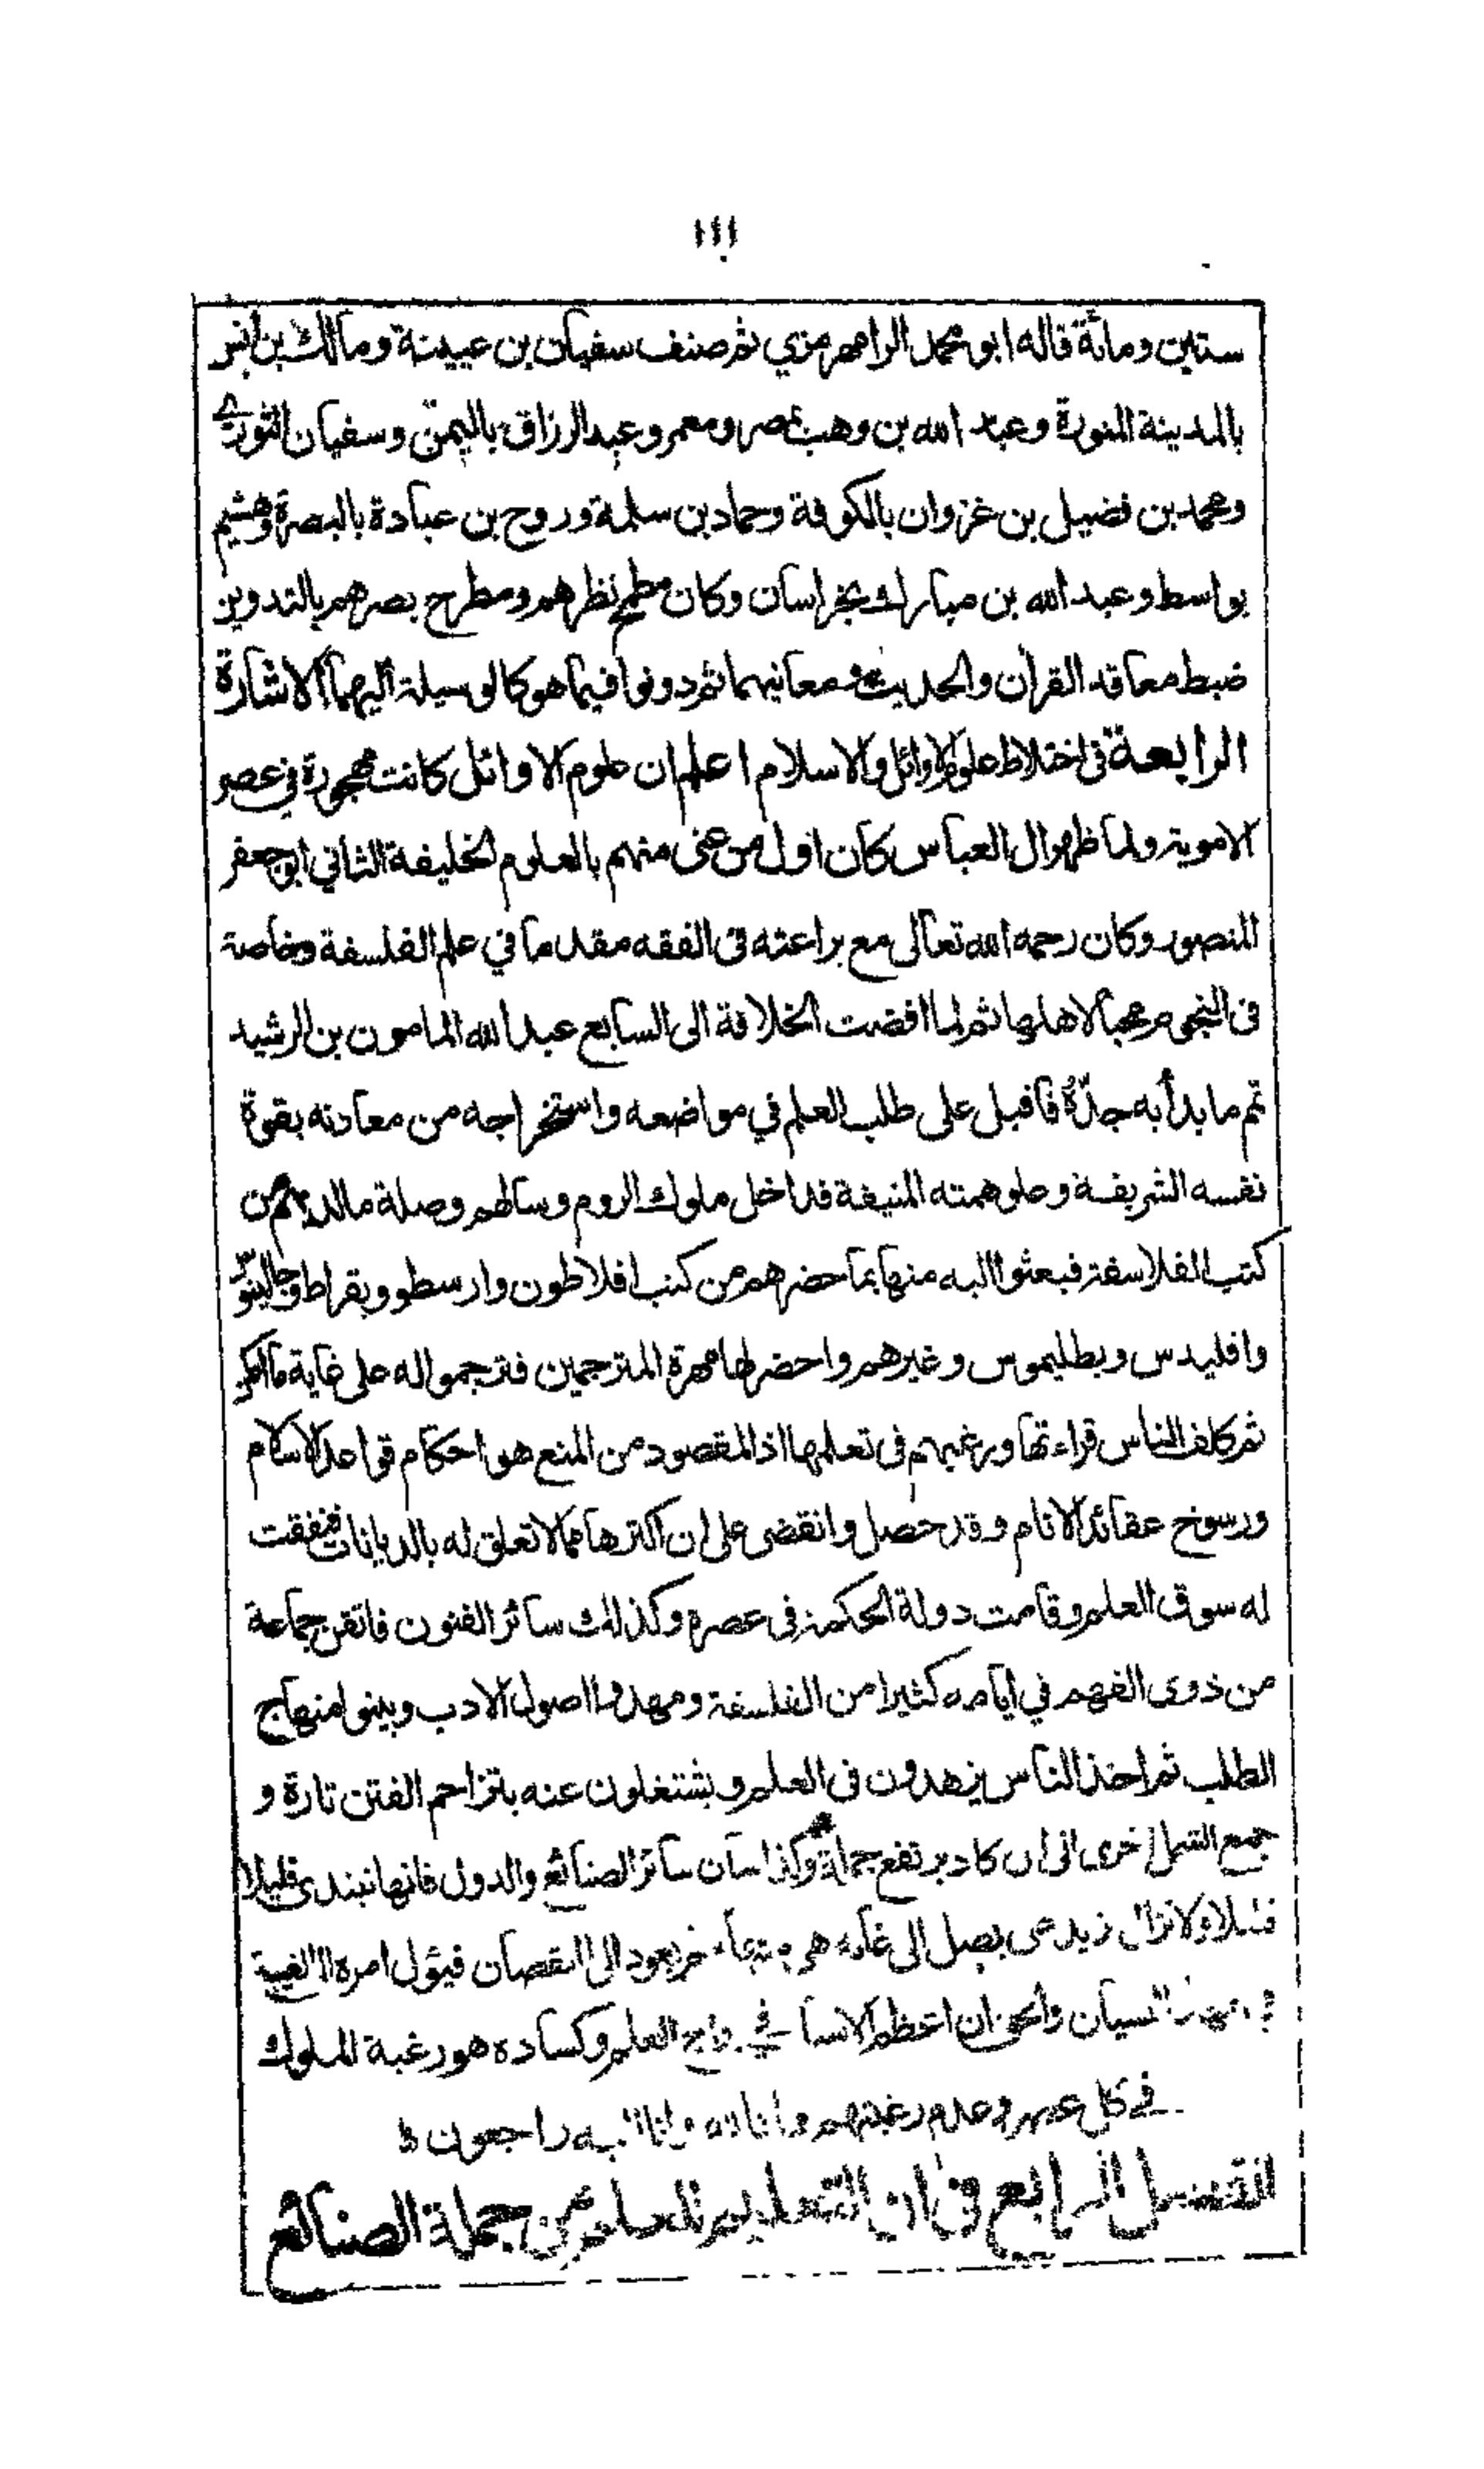 ١١١
ستين ومائة قاله ابو محمد الرامهرمزي ثم صنف سفيان بن عيينة ومالك بن انس
بالمدينة المنورة وعبد الله بن وهب بمصر ومعمر وعبد الرزاق باليمن وسفيان الثوري
ومحمد بن فضيل بن غزوان بالكوفة وحماد بن سلمة وروح بن عبادة بالبصرة وهشيم
بواسط وعبد الله بن مبارك بخراسان وكان مطمح نظرهم ومطرح بصرهم بالتدوين
ضبط معاقد القرآن والحديث ومعانيهما ثم دونوا فيما هو كالوسيلة اليهما الاشارة
الرابعة فى اختلاط علوم الاوائل والاسلام اعلم ان علوم الاوائل كانت مهجورة في عصر
الاموية ولما ظهر ال العباس كان اول من عنى منهم بالعلوم الخليفة الثاني ابو جعفر
المنصور وكان رحمه الله تعالى مع براعته فى الفقه مقدما في علم الفلسفة وخاصة
فى النجوم محبا لاهلها ثم لما افضت الخلافة الى السابع عبد الله المامون بن الرشيد
تمم ما بدأ به جدّه فاقبل على طلب العلم في مواضعه واستخراجه من معادنه بقوة
نفسه الشريفة وعلو همته المنيفة فداخل ملوك الروم وسألهم وصلة ما لديهم من
كتب الفلاسفة فبعثوا اليه منها بما حضرهم من كتب افلاطون وارسطو وبقراط وجالينوس
واقليدس وبطليموس وغيرهم واحضر لها مهرة المترجمين فترجموا له على غاية ما امكن
ثم كلف الناس قراءتها ورغبهم فى تعلمها اذ المقصود من المنع هو احكام قواعد الاسلام
ورسوخ عقائد الانام وقد حصل وانقضى على ان اكثرها مما لا تعلق له بالديانات فنفقت
له سوق العلم وقامت دولة الحكمة فى عصره وكذلك سائر الفنون فاتقن جماعة
من ذوى الفهم في ايامه كثيرا من الفلسفة ومهدوا اصول الادب وبينوا منهاج
الطلب ثم اخذ الناس يزهدون فى العلم ويشتغلون عنه بتزاحم الفتن تارة و
جمع الشمل اخرى الى ان كاد يرتفع جملة وكذا شان سائر الصنائع والدول فانها تبتدى قليلا
قليلا ولا تزال يزيد حتى يصل الى غاية هى منتهاه ثم يعود الى النقصان فيؤل امره الى الغيبة
في النسيان والحق ان اعظم الاسباب في رواج العلم وكساده هو رغبة الملوك
في كل عصر وعدم رغبتهم وانا لله وانا اليه راجعون
الفصل الرابع فى ان التعليم للعلم من جملة الصنائع